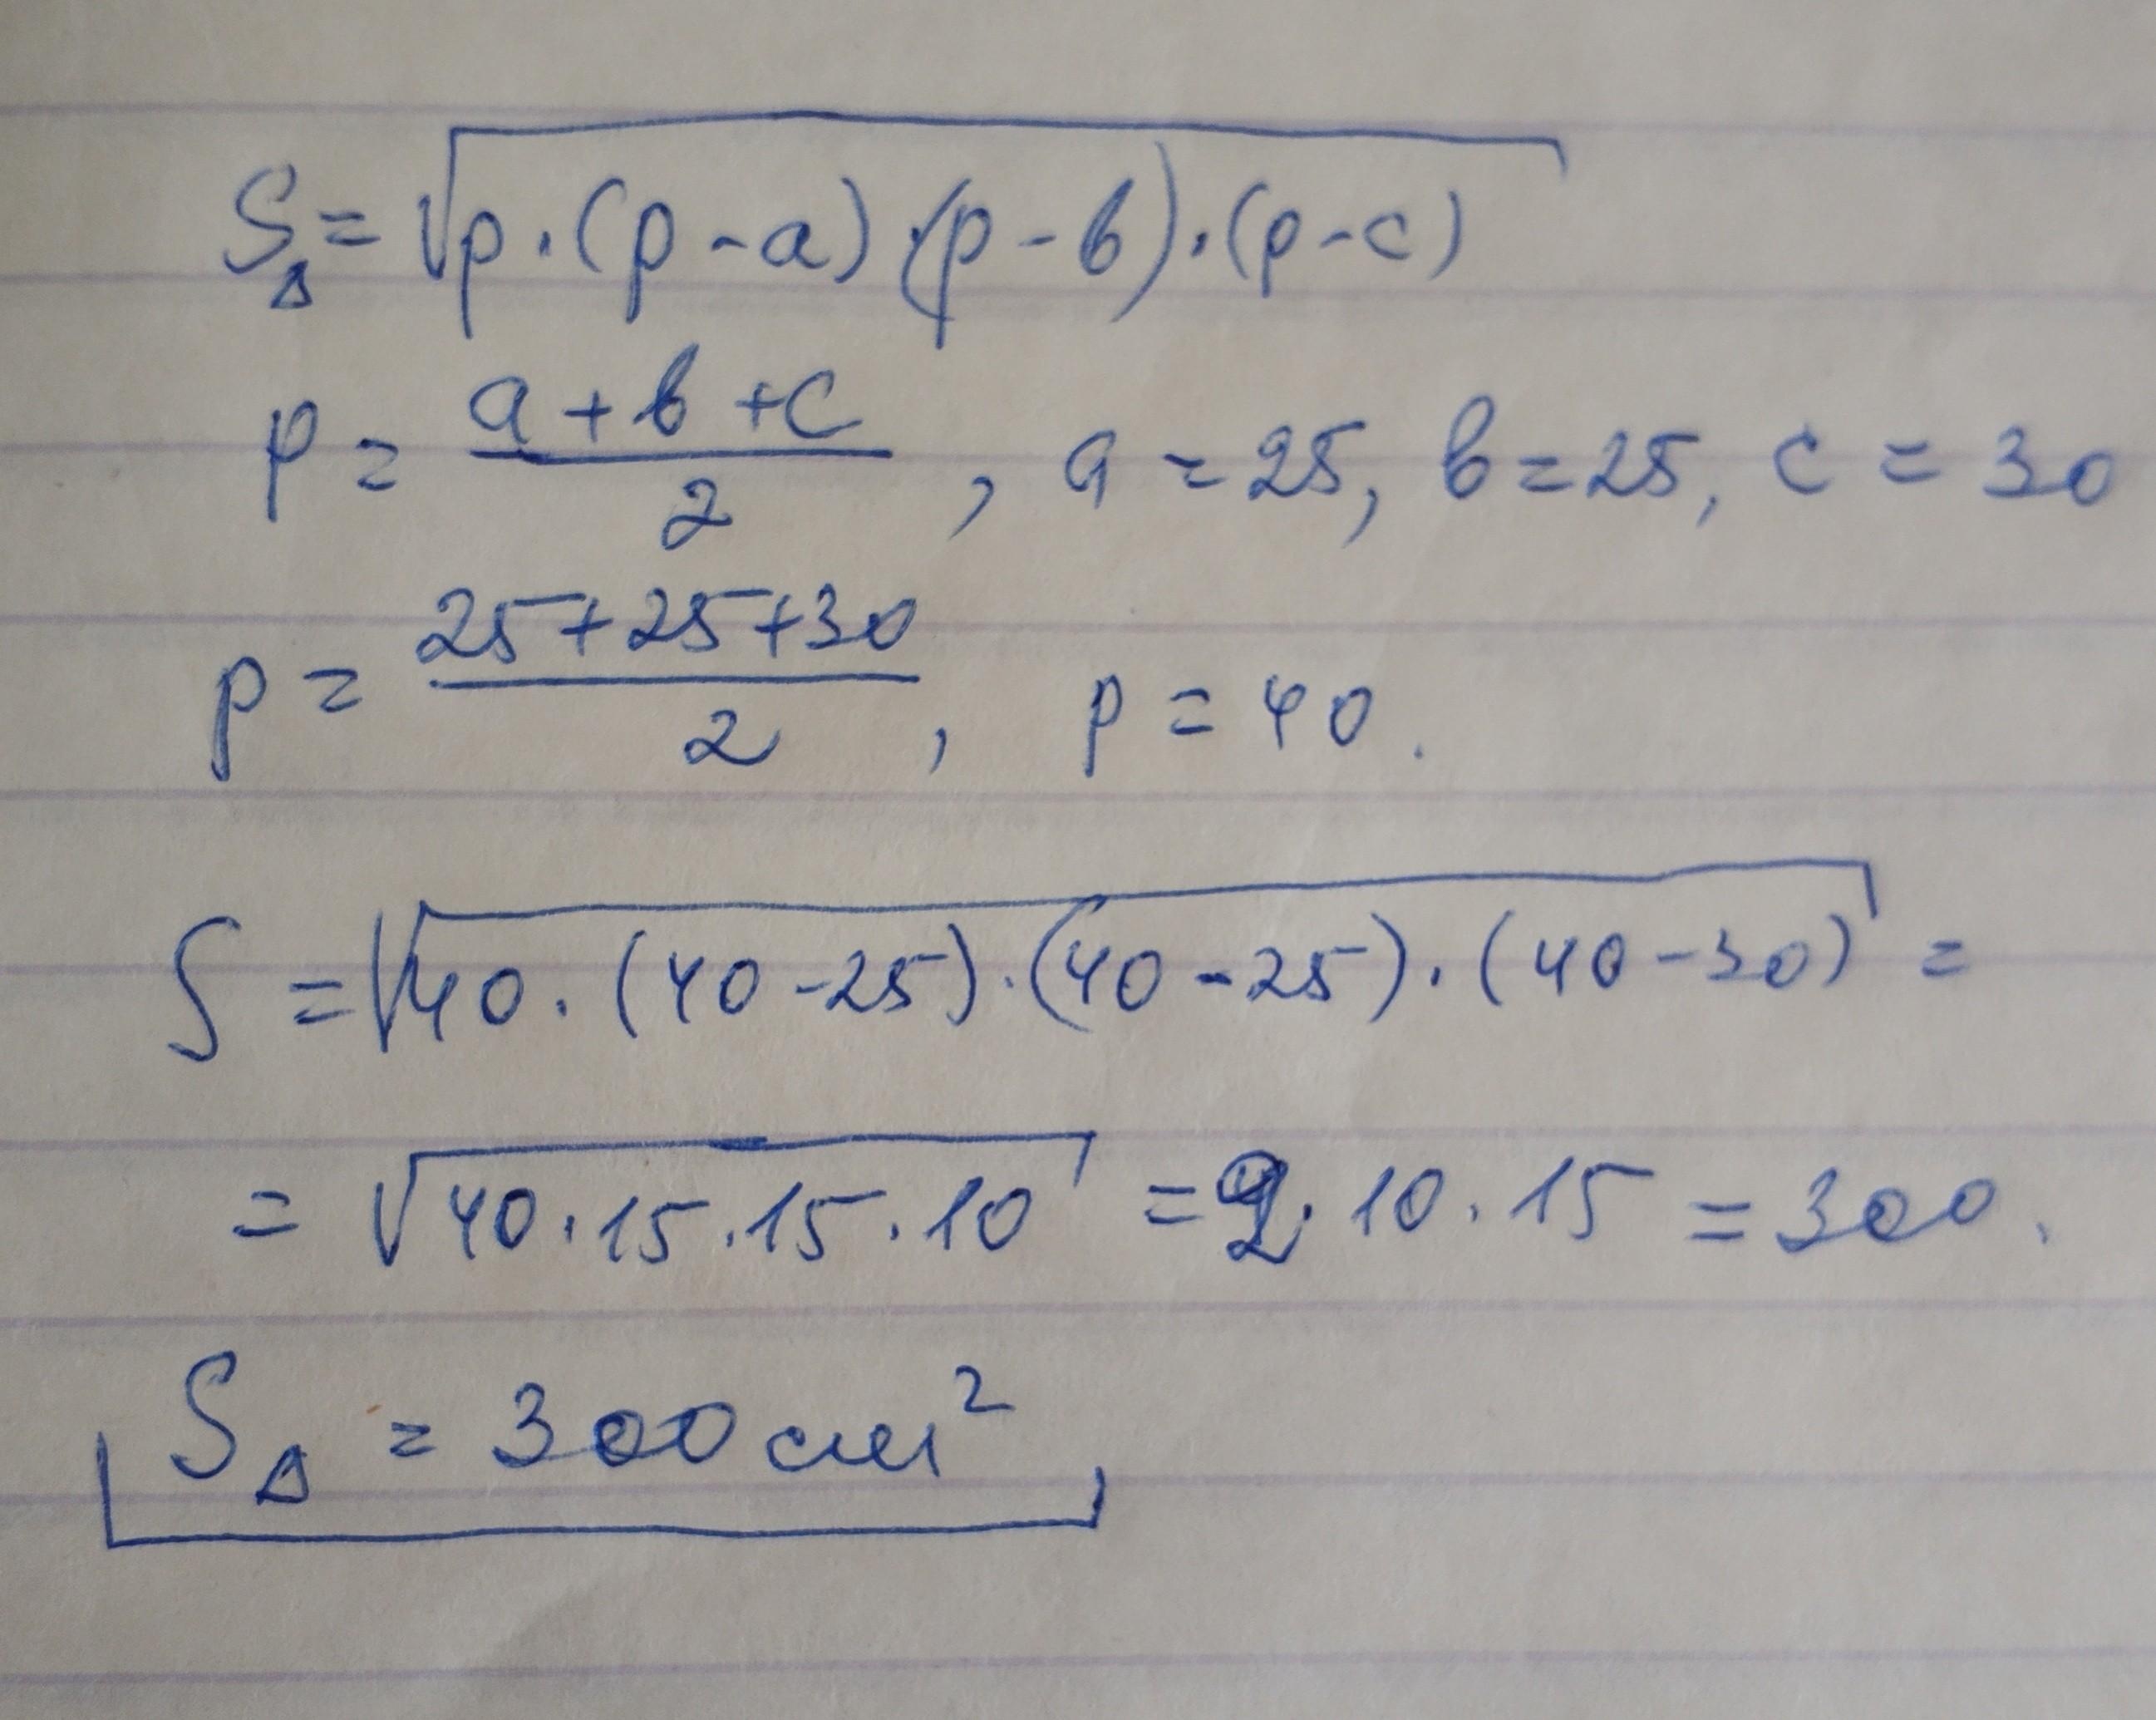 S_Δ = √(p·(p-a)·(p-b)·(p-c))
p = (a+b+c)/2, a = 25, b = 25, c = 30
p = (25+25+30)/2, p = 40.
S = √(40·(40-25)·(40-25)·(40-30)) =
= √(40·15·15·10) = 2·10·15 = 300.
S_Δ = 300 см²